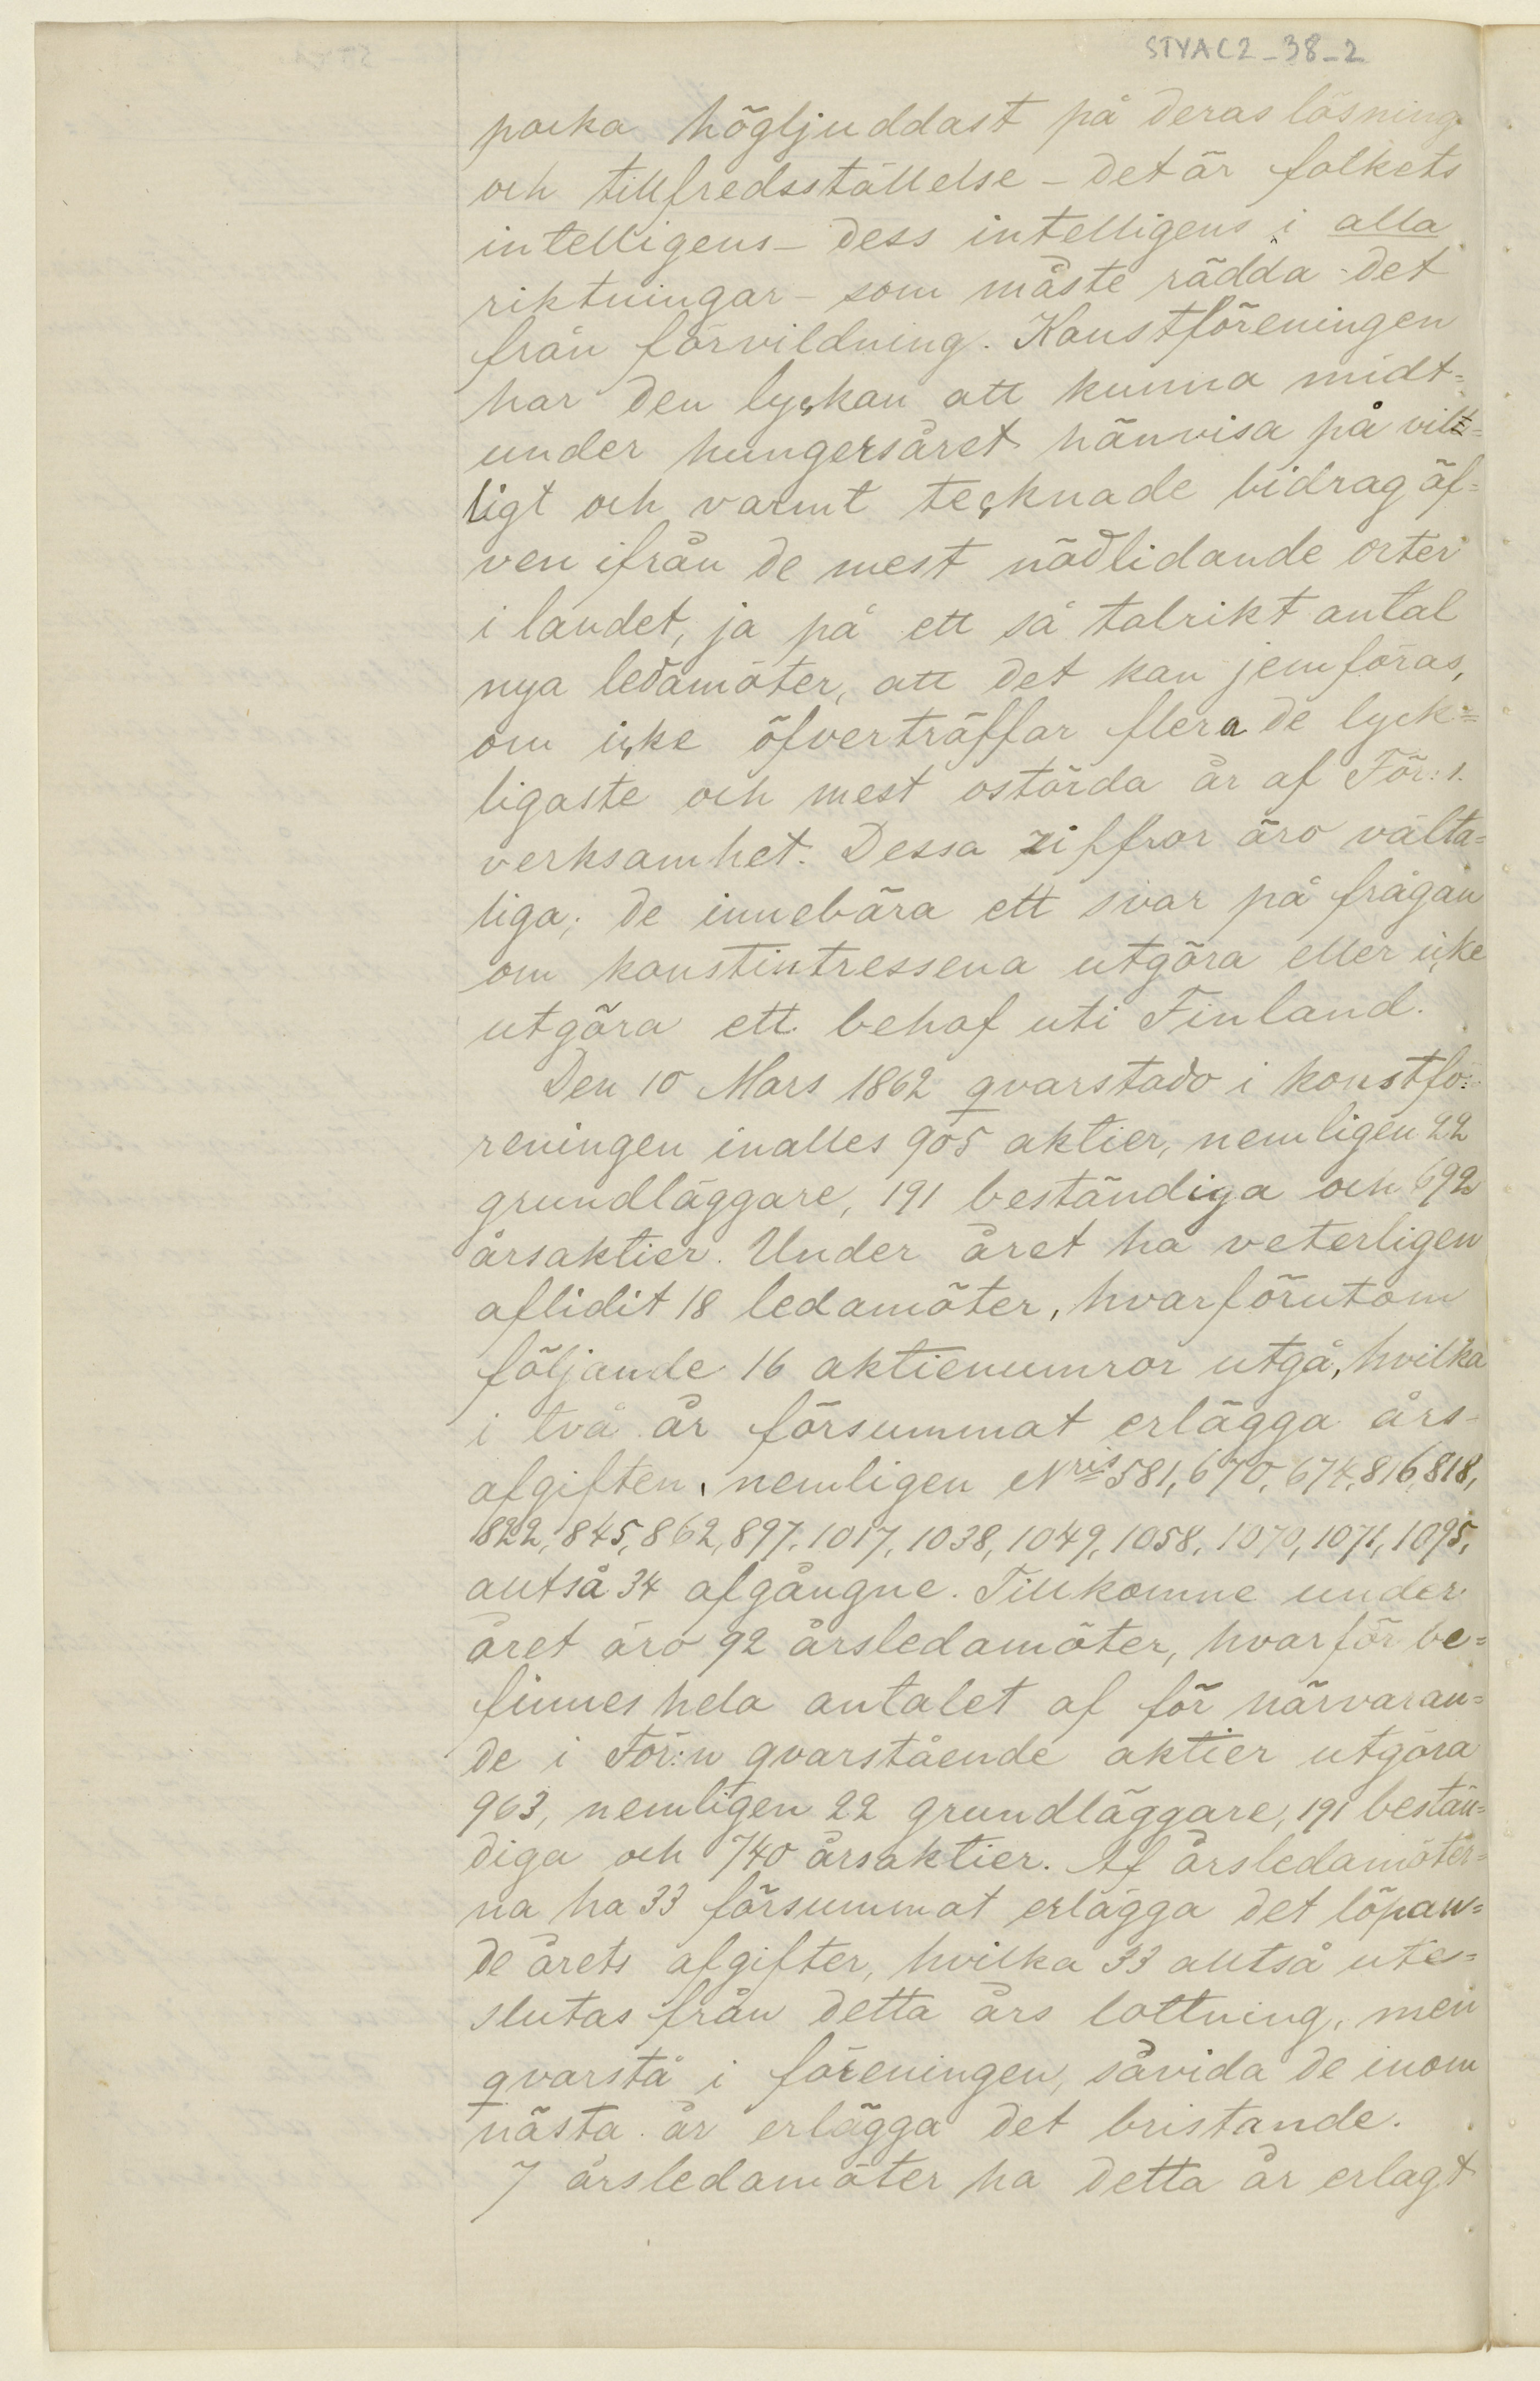 STYAC2_38_2
pocka högljuddast på deras lösning
och tillfredsställelse – det är folkets
intelligens – dess intelligens i alla
riktningar – som måste rädda det
från förvildning. Konstföreningen
har den lyckan att kunna midt=
under hungersåret hänvisa på vil=
ligt och varmt tecknade bidrag äf=
ven ifrån de mest nödlidande orter
i landet, ja på ett så talrikt antal
nya ledamöter, att det kan jemföras,
om icke öfverträffar flera de lyck=
ligaste och mest ostörda år af För:s.
verksamhet. Dessa ziffror äro välta=
liga; de innebära ett svar på frågan
om konstintressena utgöra eller icke
utgöra ett behof uti Finland.
Den 10 Mars 1862 qvarstodo i konstfö=
reningen inalles 905 aktier, nemligen 22
grundläggare, 191 beständiga och 692
årsaktier. Under året ha veterligen
aflidit 18 ledamöter, hvarförutom
följande 16 aktienumror utgå, hvilka
i två år försummat erlägga års-
afgiften, nemligen Nris 581, 670, 674, 816, 818,
822, 845, 862, 897, 1017, 1038, 1049, 1058, 1070, 1071, 1095,
alltså 34 afgångne. Tillkomne under
året äro 92 årsledamöter, hvarför be=
finnes hela antalet af för närvaran=
de i För:n qvarstående aktier utgöra
963, nemligen 22 grundläggare, 191 bestän=
diga och 740 årsaktier. Af årsledamöter=
na ha 33 försummat erlägga det löpan=
de årets afgifter, hvilka 33 alltså ute=
slutas från detta års lottning, men
qvarstå i föreningen, såvida de inom
nästa år erlägga det bristande.
7 årsledamöter ha detta år erlagt